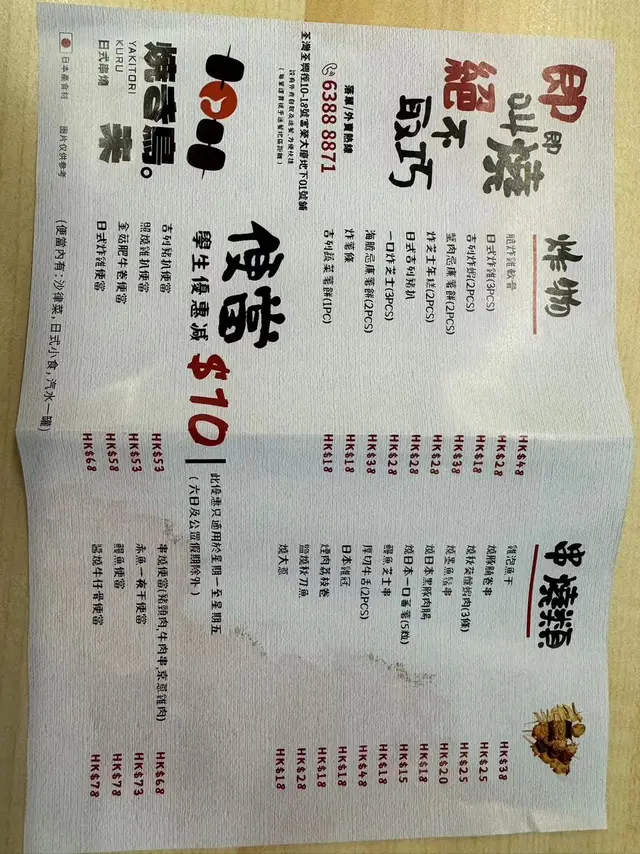 即叫即燒
絕不取巧
落單/外賣熱線
6388 8871
荃灣荃興徑10-18號富榮大廈地下01號舖
燒香鳥。
YAKITORI
KURU
日式串燒
日本產食材
圖片仅供参考
炸物
脆炸雞軟骨 HK$48
日式炸雞(3PCS) HK$28
吉列炸蝦(2PCS) HK$18
蟹肉忌廉薯餅(2PCS) HK$38
炸芝士年糕(2PCS) HK$28
日式吉列豬扒 HK$28
一口炸芝士(3PCS) HK$28
海膽忌廉薯餅(2PCS) HK$38
炸薯條 HK$18
吉列蔬菜薯餅(1PC) HK$18
串燒類
雞泡魚干 HK$38
燒豚腩卷串 HK$25
蝦肉(3條) HK$25
燒墨魚鬚串 HK$20
燒日本黑豚肉腸 HK$18
燒日本一口番薯(5粒) HK$15
鱈魚芝士串 HK$18
厚切牛舌(2PCS) HK$48
日本雞冠 HK$18
煙肉荔枝卷 HK$18
鹽燒秋刀魚 HK$28
燒大蔥 HK$18
便當
學生優惠減 $10
此優惠只適用於星期一至星期五
(六日及公眾假期除外)
吉列豬扒便當 HK$53
照燒雞扒便當 HK$53
金菇肥牛卷便當 HK$58
日式炸雞便當 HK$68
串燒便當(豬頸肉,牛肉串,京蔥雞肉) HK$68
赤魚一夜干便當 HK$73
鰻魚便當 HK$78
醬燒牛仔骨便當 HK$78
(便當內有:沙律菜,日式小食,汽水一罐)